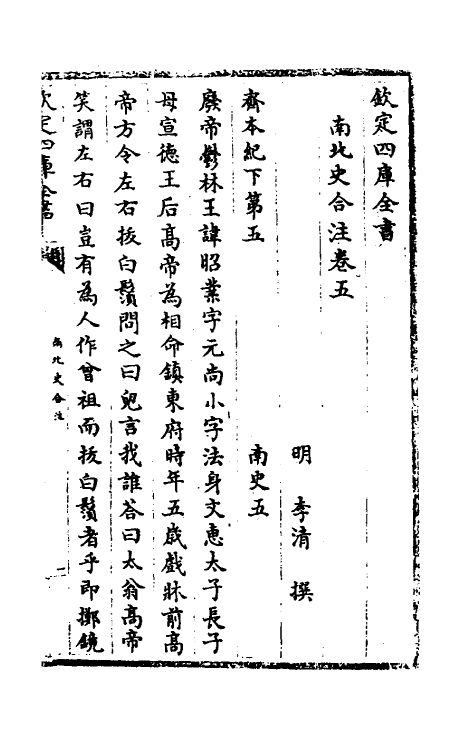 欽定四庫全書
南北史合注卷五
明 李清 撰
齊本紀下第五 南史五
廢帝鬱林王諱昭業字元尚小字法身文惠太子長子
母宣德王后高帝為相命鎮東府時年五歲戲牀前高
帝方令左右拔白鬚問之曰兒言我誰答曰太翁高帝
笑謂左右曰豈有為人作曾祖而拔白鬚者乎即擲鏡
欽定四庫全書
南北史合注